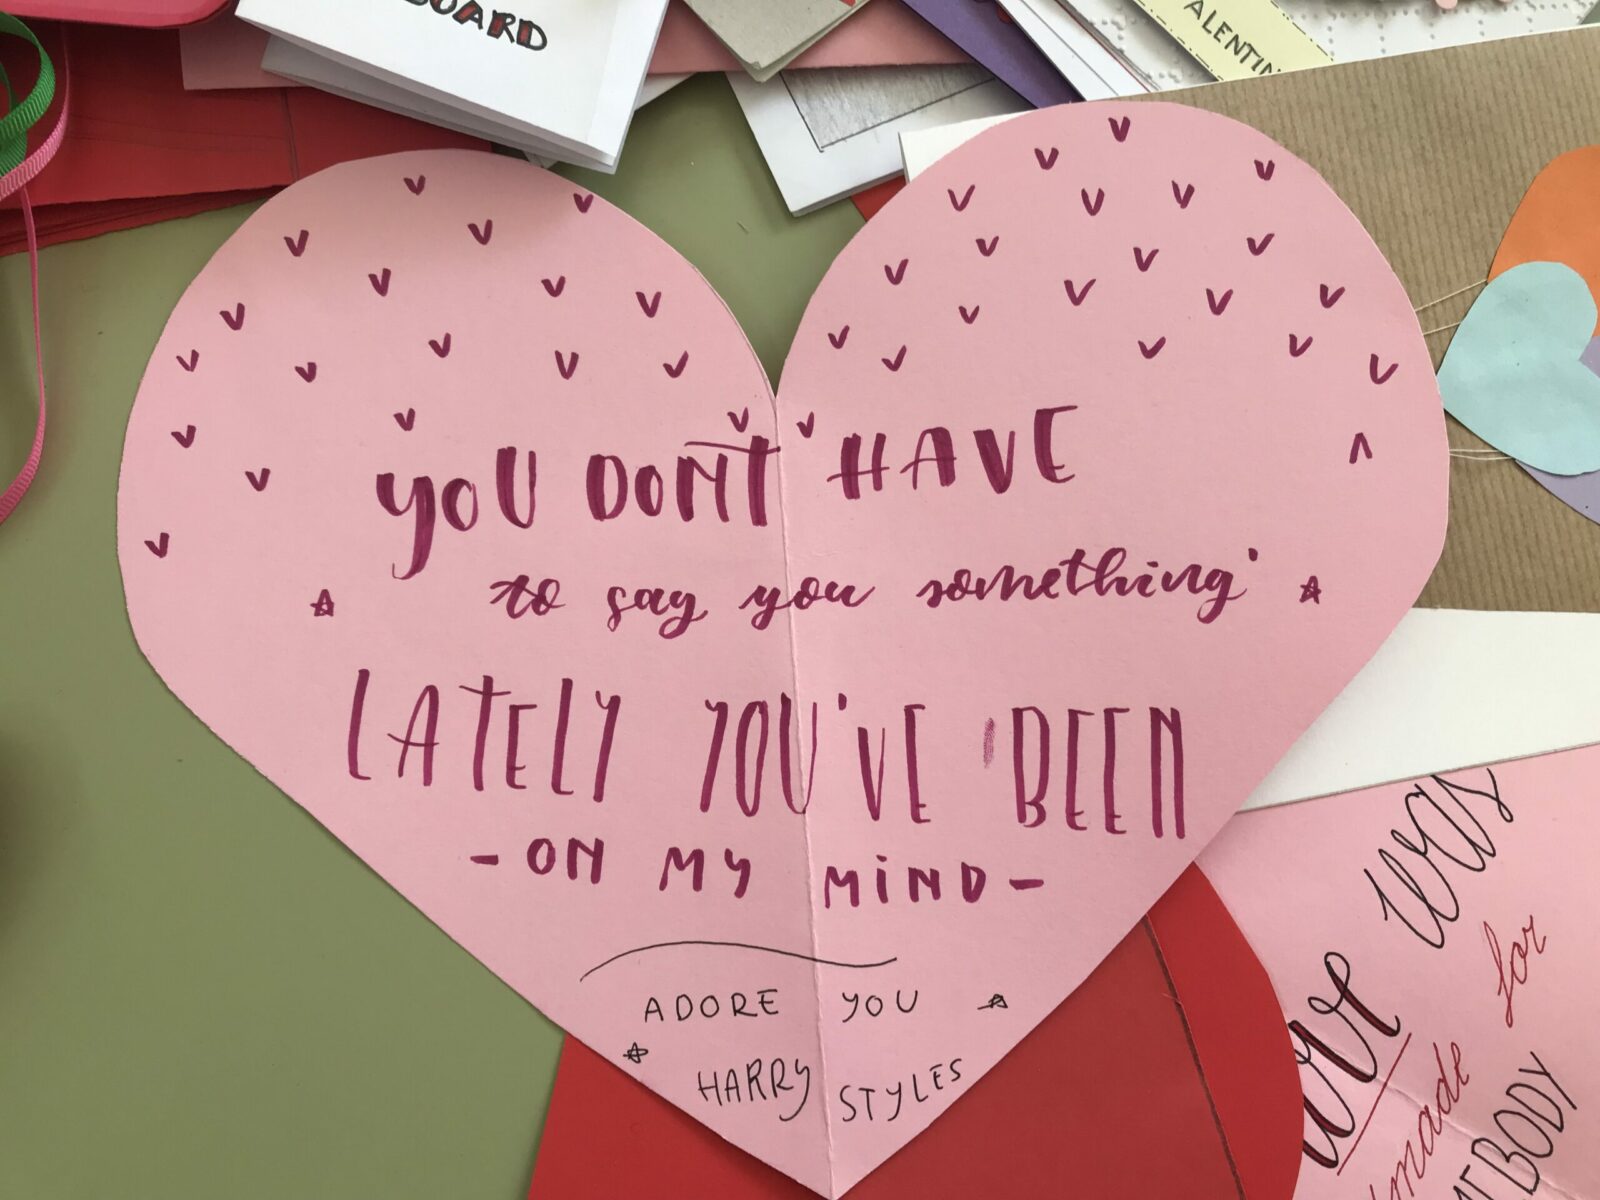 BOARD
ALENTIN
YOU DON'T HAVE
to say you something
LATELY YOU'VE BEEN
- ON MY MIND -
ADORE YOU
HARRY STYLES
love was
made for
MEBODY